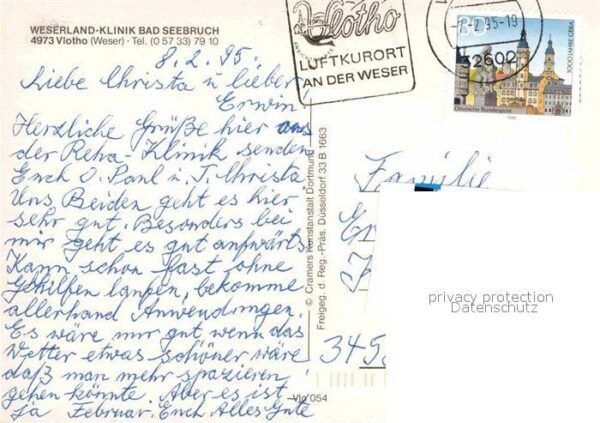 WESERLAND-KLINIK BAD SEEBRUCH
4973 Vlotho (Weser) · Tel. (0 57 33) 79 10
8.2.95.
Liebe Christa u lieber
Erwin
Herzliche Grüße hier aus
der Reha-Klinik senden
Euch O. Paul u. T. Christa
Uns Beiden geht es hier
sehr gut. Besonders bei
mir geht es gut aufwärts.
Kann schon fast ohne
Gehilfen laufen, bekomme
allerhand Anwendungen.
Es wäre mir gut wenn das
Wetter etwas schöner wäre
daß man mehr spazieren
gehen könnte. Aber es ist
ja Februar. Euch Alles Gute
Vlotho
LUFTKURORT
AN DER WESER
2.95-19
32602
80
1000 JAHRE GERA
Deutsche Bundespost
1995
© Cramers Kunstanstalt Dortmund
Freigeg. d. Reg.-Präs. Düsseldorf 33 B 1663
Vlo 054
Familie
privacy protection
Datenschutz